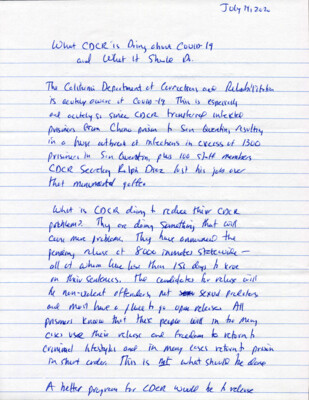 July 19, 2020
What CDCR is Doing about Covid-19
and What It Should Do.
The California Department of Corrections and Rehabilitation
is acutely aware of Covid-19. This is especially
and acutely so since CDCR transferred infected
prisoners from Chino prison to San Quentin, resulting
in a huge outbreak of infections in excess of 1300
prisoners in San Quentin, plus 100 staff members
CDCR Secretary Ralph Diaz lost his job over
that monumental gaffe.
What is CDCR doing to reduce their CDCR
problems? They are doing something that will
cause more problems. They have announced the
pending release of 8000 inmates statewide —
all of whom have less than 180 days to serve
on their sentences. The candidates for release will
be non-violent offenders, not sexual predators
and must have a place to go upon release. All
prisoners know that these people will in far many
cases use their release and freedom to return to
criminal lifestyles and in many cases return to prison
in short order. This is not what should be done
A better program for CDCR would be to release